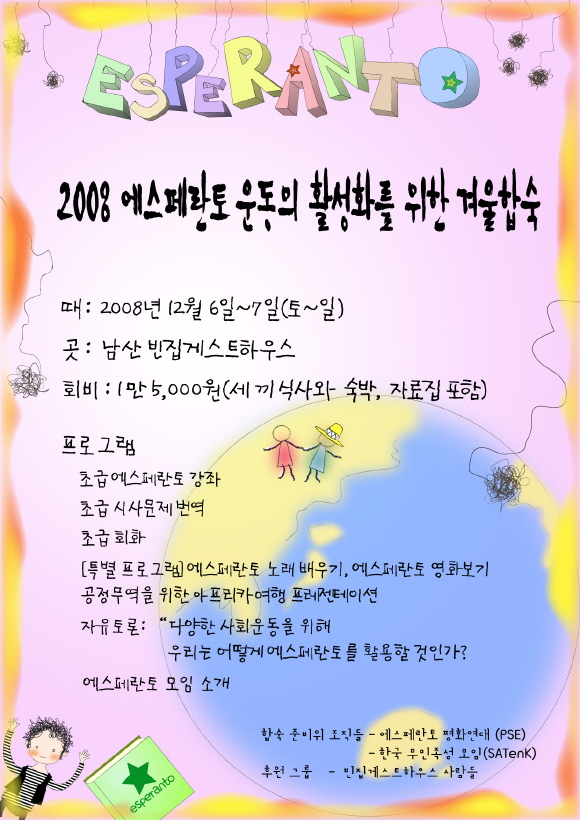 ESPERANTO
2008 에스페란토 운동의 활성화를 위한 겨울합숙
때 : 2008년 12월 6일~7일(토~일)
곳 : 남산 빈집게스트하우스
회비 : 1만 5,000원(세 끼 식사와 숙박, 자료집 포함)
프로그램
초급 에스페란토 강좌
초급 시사문제 번역
초급 회화
[특별 프로그램] 에스페란토 노래 배우기, 에스페란토 영화보기
공정무역을 위한 아프리카여행 프레젠테이션
자유토론: “다양한 사회운동을 위해
우리는 어떻게 에스페란토를 활용할 것인가?
에스페란토 모임 소개
합숙 준비위 조직들 - 에스페란토 평화연대 (PSE)
- 한국 무민족성 모임(SATenK)
후원 그룹 - 빈집게스트하우스 사람들
esperanto